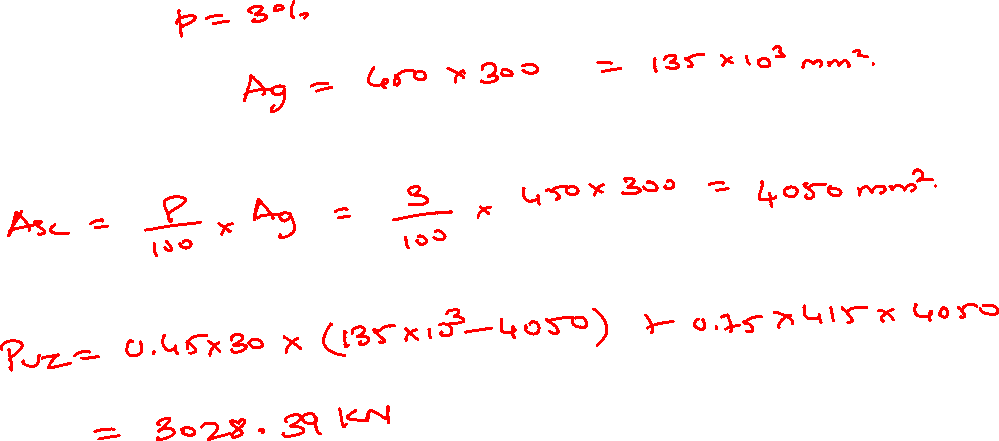 p = 3%
Ag = 450 × 300 = 135 × 10³ mm².
Asc = P/100 × Ag = 3/100 × 450 × 300 = 4050 mm².
Puz = 0.45×30 × (135×10³ – 4050) + 0.75 × 415 × 4050
= 3028.39 KN